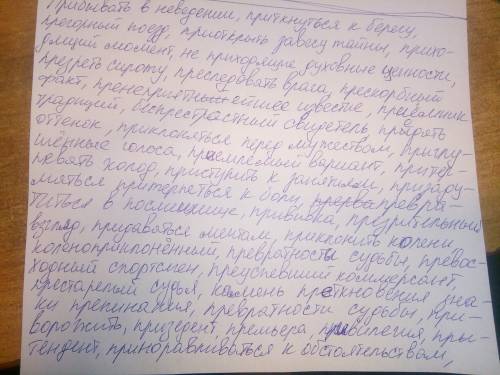 Прибывать в неведении, приткнуться к берегу,
пригорный поезд, приоткрыть завесу тайны, прихо-
дящий момент, не приходящие духовные ценности,
презреть сироту, преследовать врага, прескорбный
факт, пренеприятнейшее известие, преемник
традиций, беспрестрастный свидетель, придать
оттенок, приклоняться перед мужеством, приглу-
шённые голоса, приемлемый вариант, притер-
певать холод, приступить к занятиям,
мляться притерпеться к боли, превра-
титься в посмешище, прививка, презрительный
взгляд, придываться мечтам, приклонить колени,
коленоприклонённый, превратность судьбы, превос-
ходный спортсмен, преуспевший коммерсант,
престарелый судья, камень преткновения зна-
ки препинания, превратности судьбы, при-
ворожить, презедент, премьера, привилегия, пры-
тендент, приноравливаться к обстоятельствам,